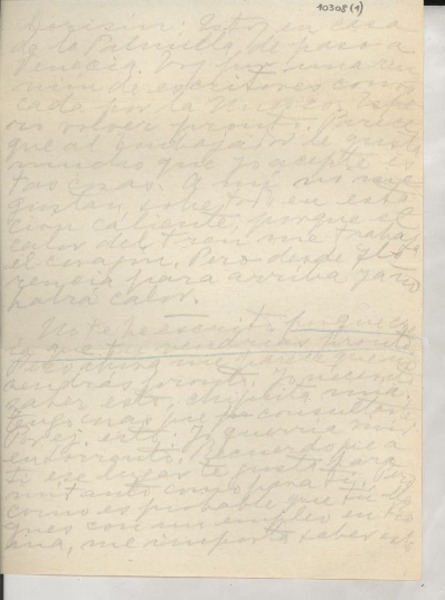 10308(1)
Dorisín: Estoy en casa
de la Palmilla, de paso a
Venecia. Voy por una reu
nión de escritores convo
cada por la Unesco. Espe
ro volver pronto. Parece
que al Embajador le gusta
mucho que yo acepte es
tas cosas. A mí no me
gustan, sobre todo en esta
ción caliente, porque el
calor del tren me traba
el corazón. Pero desde Flo
rencia para arriba ya no
habrá calor.
No te he escrito porque
que tú vendrías pronto.
me parece que no
vendrás pronto. Yo necesito
saber esto, chiquita mía.
Tengo más que consultar
Por ej. esto: Yo querría vivir
en Sorrento. Recuerdo que a
ti ese lugar te gusta para
un tanto como para ti. Pero
como es probable que tú lle
gues con un empleo en Ro
ma, me importa saber esto